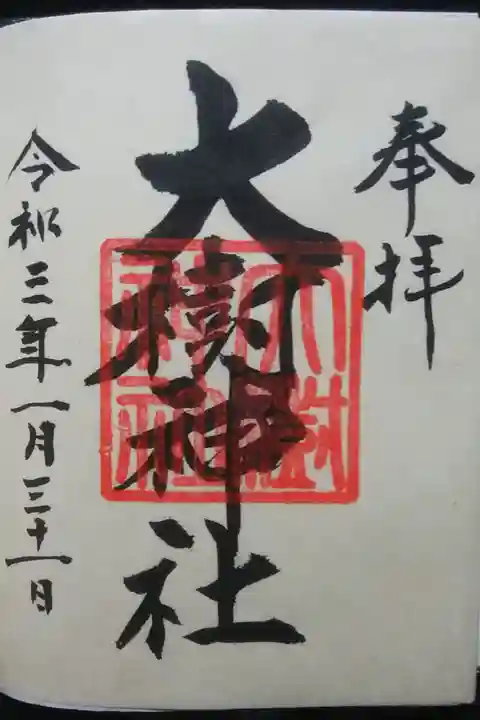 奉拝
大樹神社
大樹神社
令和三年一月三十一日